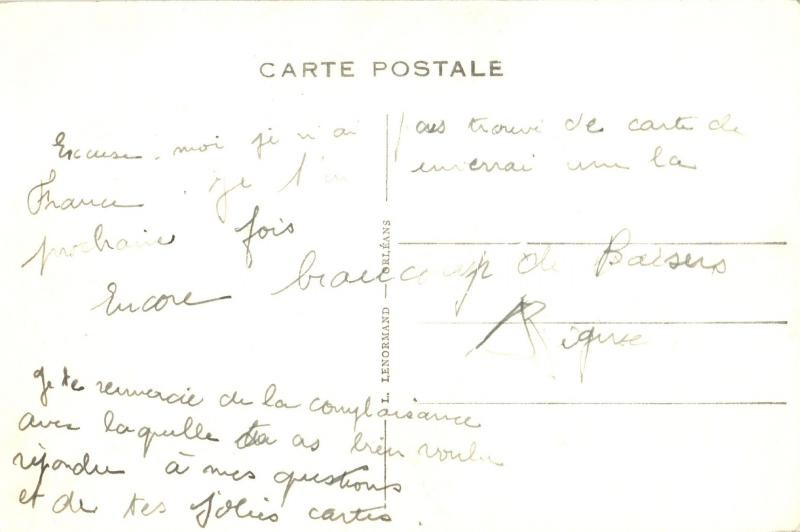 CARTE POSTALE
Excuse-moi je n'ai pas trouvé de carte de
France. Je t'en enverrai une la
prochaine fois
Encore beaucoup de Baisers
L. LENORMAND — ORLÉANS
Je te remercie de la complaisance
avec laquelle tu as bien voulu
répondre à mes questions
et de tes jolies cartes.